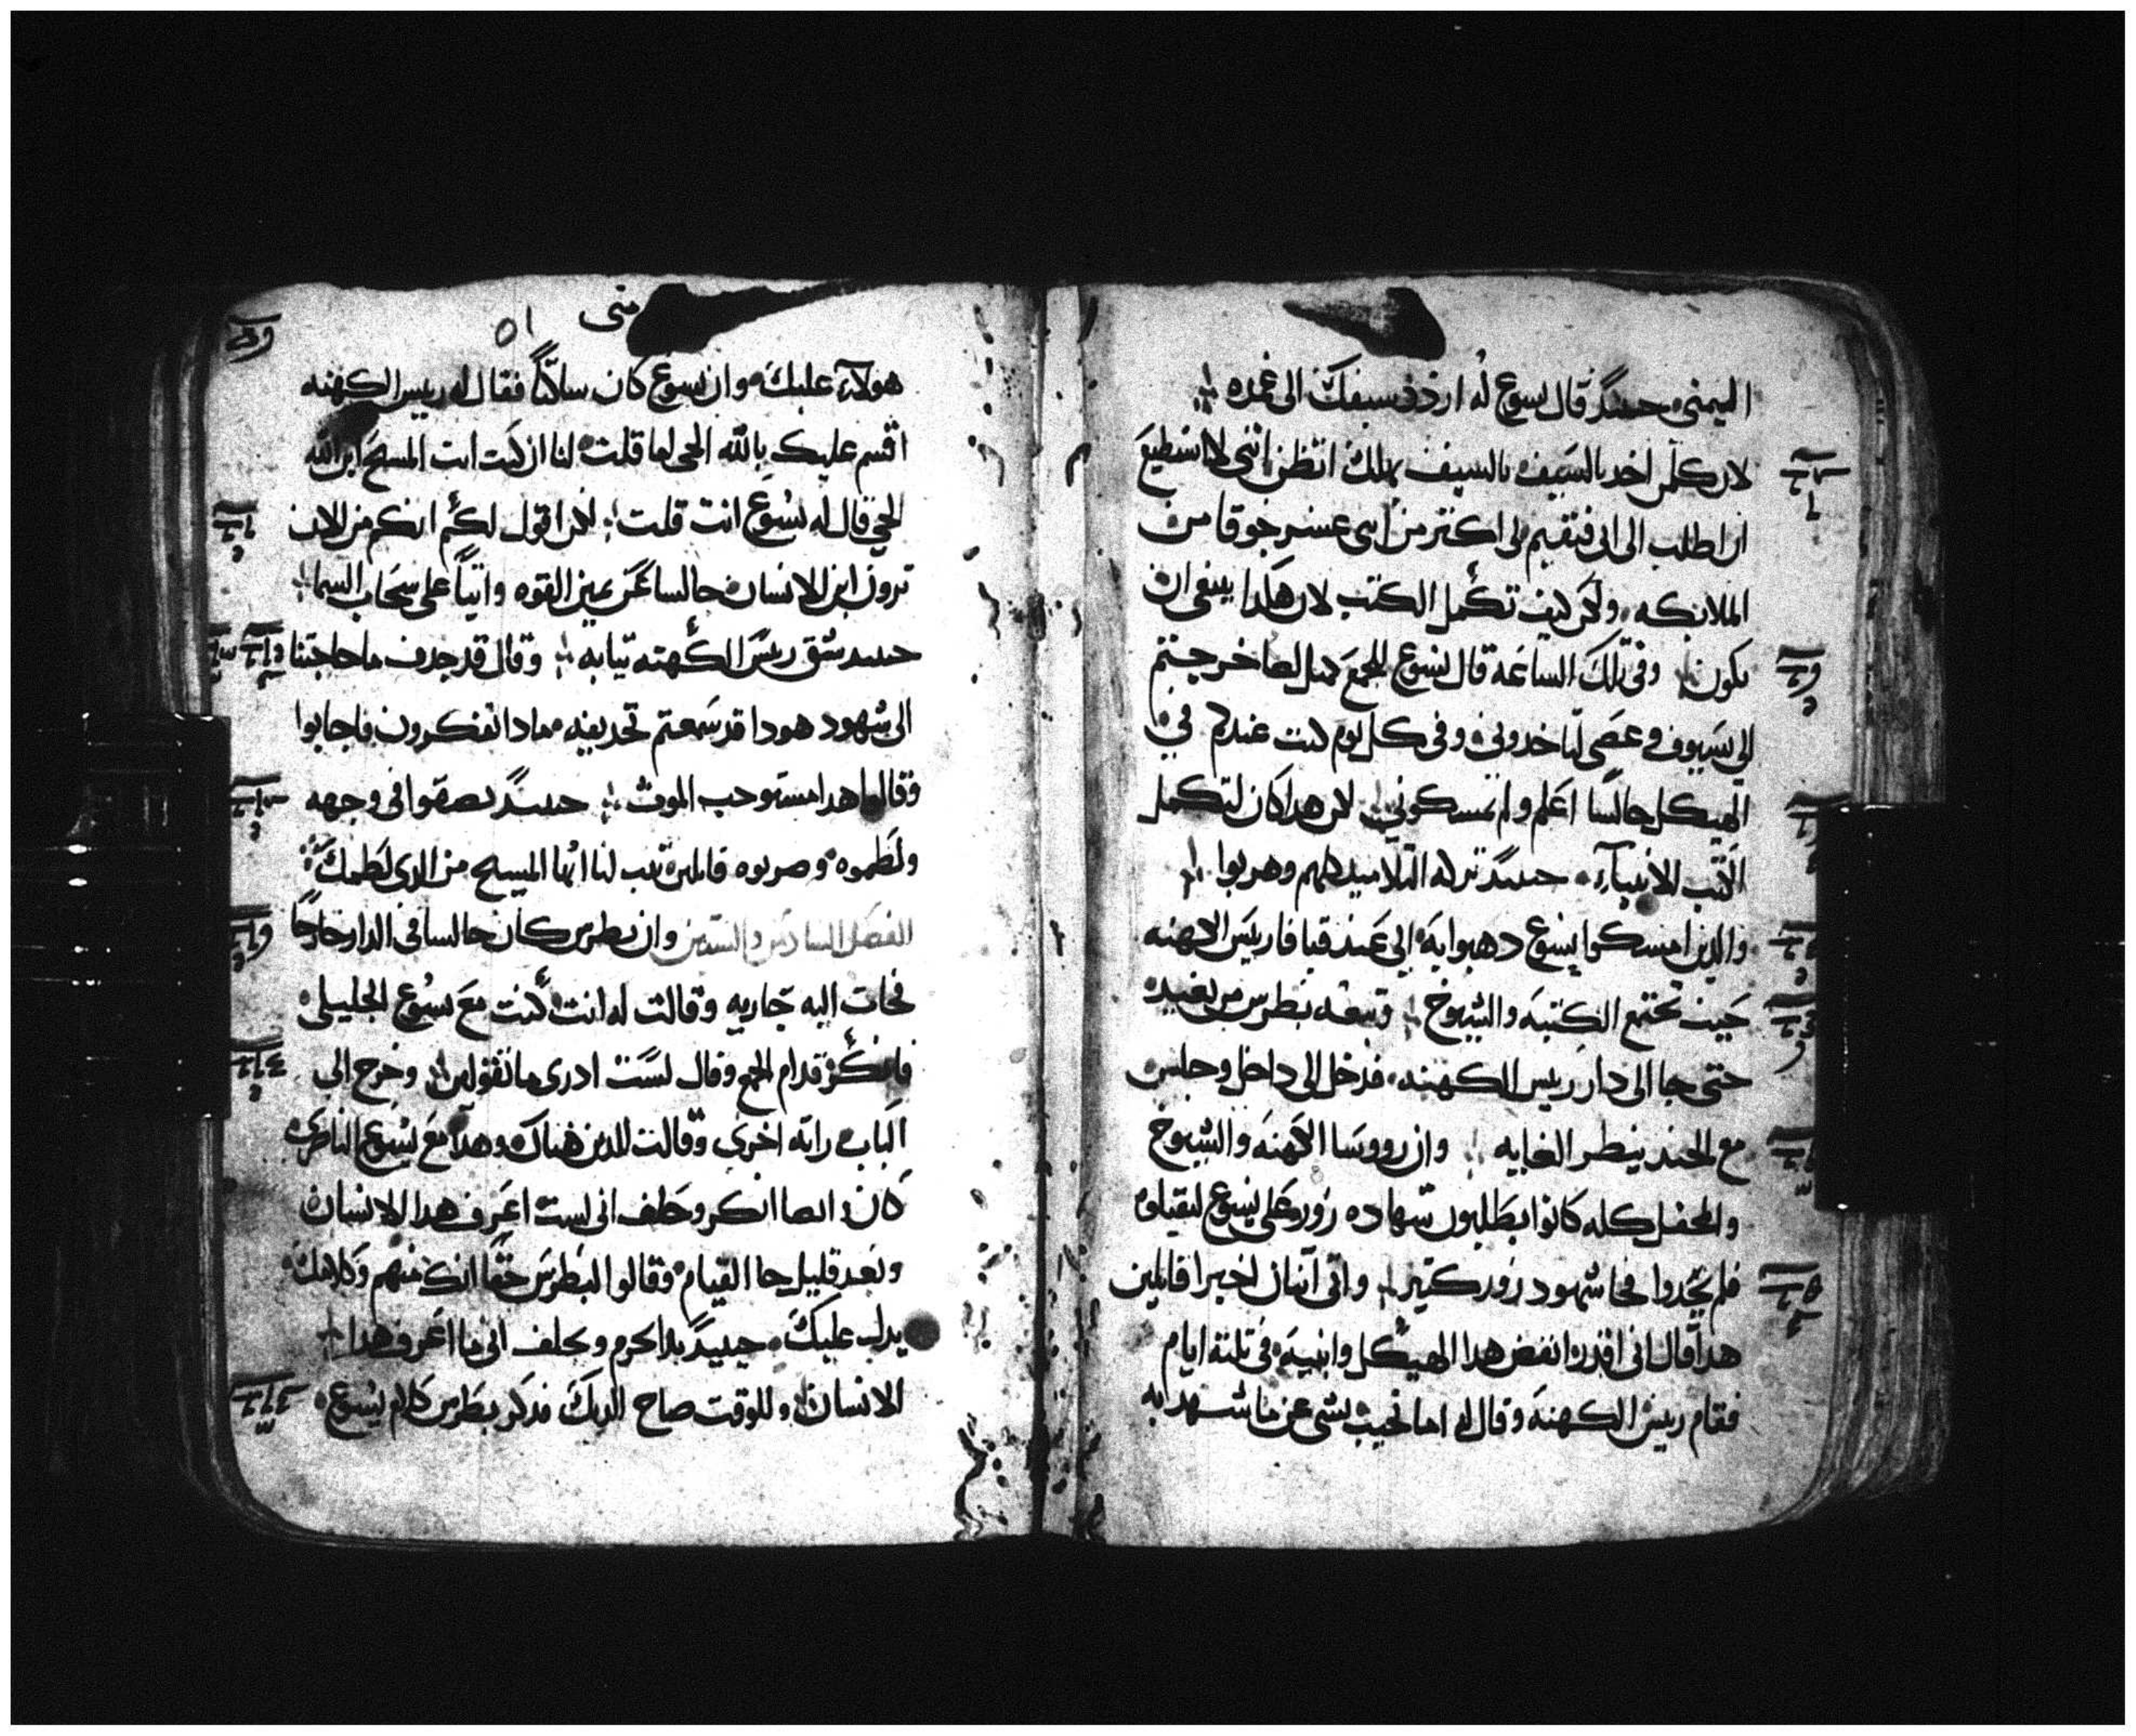 اليمنى حينيدٍ قال يسوع له اردد سيفك الى غمده
لان كلمن اخد بالسيف بالسيف يهلك اتظن انني لا استطيع
ان اطلب الى ابي فيقيم لي اكتر من اتني عشر جوقا من
الملايكه ولكن كيف تكمل الكتب لان هكدا ينبغي ان
يكون وفي تلك الساعة قال يسوع للجمع خرجتم
الي بسيوف وعصي لتاخدوني وفي كل يوم كنت عندكم في
الهيكل جالسا اعلم ولم تمسكوني لكن هدا كان لتكمل
كتب الانبياء حينيدٍ تركه التلاميد كلهم وهربوا
والدين امسكوا يسوع دهبوا به الى عند قيافا رييس الكهنه
حيث تجتمع الكتبه والشيوخ وتبعه بطرس من بعيد
حتى جا الى دار رييس الكهنه فدخل الى داخل وجلس
مع الجند ينظر الغايه وان رووسا الكهنه والشيوخ
والمحفل كله كانوا يطلبون شهاده زور على يسوع ليقتلوه
فلم يجدوا فجا شهود زور كتير واتى اتنان اخيرا قايلين
هدا قال اني اقدر انقض هدا الهيكل وابنيه في تلتة ايام
فقام رييس الكهنه وقال له اما تجيب بشي عن ما شهد به
متى
٥١
هولاء عليك وان يسوع كان ساكتاً فقال له رييس الكهنه
اقسم عليك بالله الحي لما قلت لنا ان كنت انت المسيح ابن الله
الحي قال له يسوع انت قلت لكن اقول لكم انكم من الان
ترون ابن الانسان جالسا عن يمين القوه واتياً على سحاب السما
حينيد شق رييس الكهنه تيابه وقال قد جدف ما حاجتنا
الى شهود هودا قد سمعتم تجديفه مادا تفكرون فاجابوا
وقالوا هدا مستوجب الموت حينيدٍ بصقوا في وجهه
ولطموه وضربوه قايلين تنب لنا ايها المسيح من الدي لطمك
الفصل السادس والستين وان بطرس كان جالسا في الدار خارجا
فجات اليه جاريه وقالت له انت كنت مع يسوع الجليلي
فانكر قدام الجمع وقال لست ادري ما تقولين وخرج الى
الباب راته اخرى وقالت للدين هناك وهدا مع يسوع الناصري
كان ايضا انكر وحلف اني لست اعرف هدا الانسان
وبعد قليل جا القيام وقالوا لبطرس حقا انك منهم وكلامك
يدل عليك حينيدٍ بدا يحرم ويحلف اني ما اعرف هدا
الانسان وللوقت صاح الديك فدكر بطرس كلام يسوع